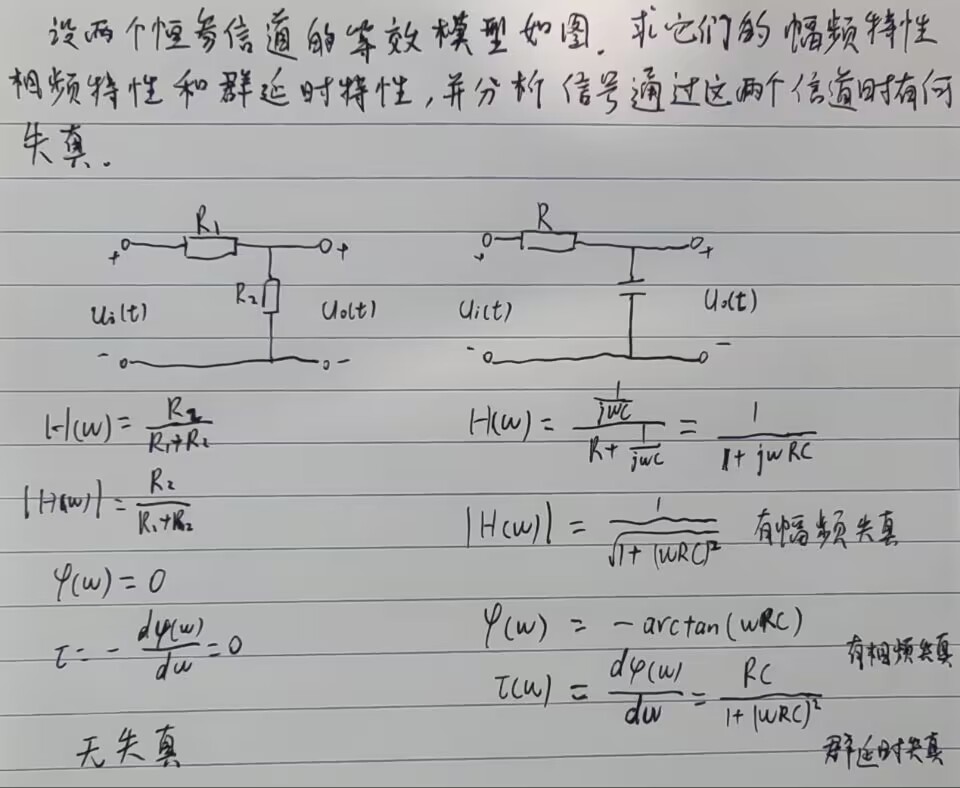 设两个恒参信道的等效模型如图. 求它们的幅频特性
相频特性和群延时特性,并分析信号通过这两个信道时有何
失真.
R₁
+
+
R₂
Ui(t)
Uo(t)
-
-
R
+
+
Ui(t)
Uo(t)
-
-
H(w) = R₂/(R₁+R₂)
|H(w)| = R₂/(R₁+R₂)
φ(w) = 0
τ = - dφ(w)/dw = 0
无失真
H(w) = (1/jwC)/(R + 1/jwC) = 1/(1 + jwRC)
|H(w)| = 1/√(1 + (wRC)²) 有幅频失真
φ(w) = - arctan(wRC)
有相频失真
τ(w) = dφ(w)/dw = RC/(1 + (wRC)²)
群延时失真